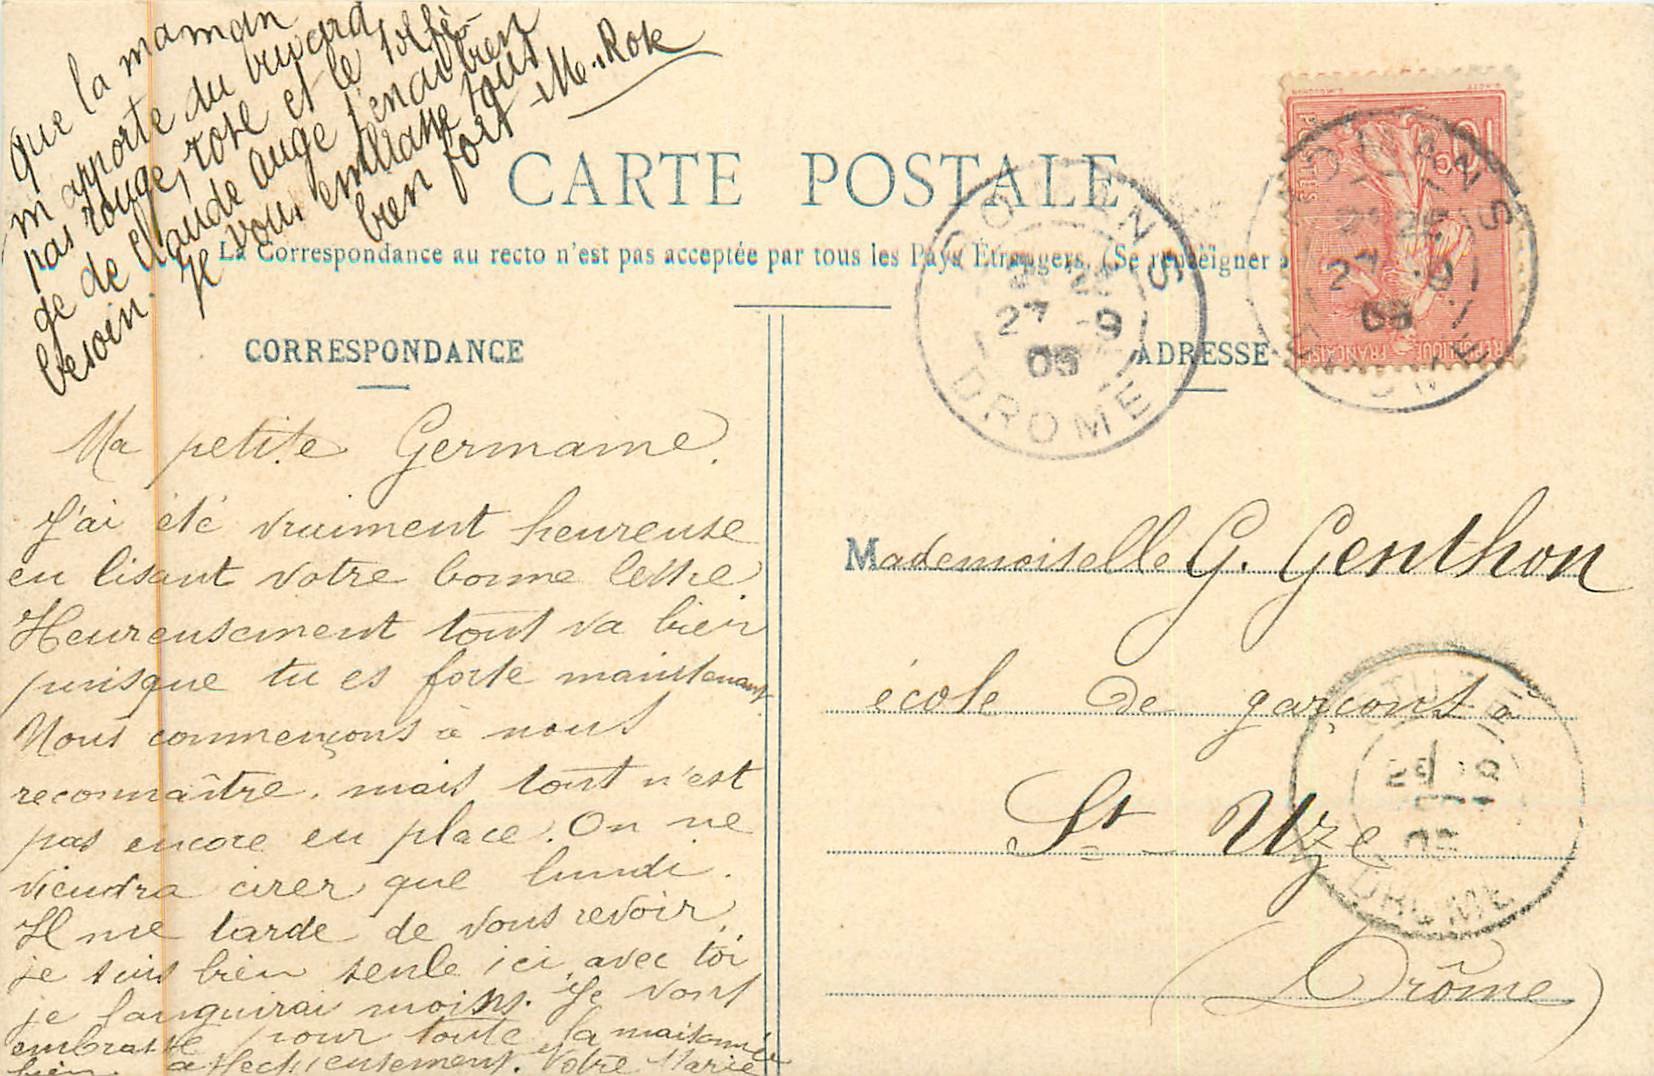 Que la maman
m'apporte du buvard,
pas rouge, rose et le solfè-
ge de Claude Augé j'en ai bien
besoin. Je vous embrasse tous
bien fort M. Rose
CARTE POSTALE
La Correspondance au recto n'est pas acceptée par tous les Pays Etrangers (Se renseigner
CORRESPONDANCE
ADRESSE
Ma petite Germaine,
J'ai été vraiment heureuse
en lisant votre bonne lettre.
Heureusement tout va bien
puisque tu es forte maintenant.
Nous commençons à nous
reconnaître, mais tout n'est
pas encore en place. On ne
viendra cirer que lundi.
Il me tarde de vous revoir,
je suis bien seule ici, avec toi
je languirai moins. Je vous
embrasse pour toute la maisonnée
bien affectueusement. Votre Marie
Mademoiselle G. Genthon
école de garçons à
St Uze
(Drôme)
27 -9
05
DROME
10
POSTES
REPUBLIQUE FRANÇAISE
27 -9
05
ST UZE
05
DROME